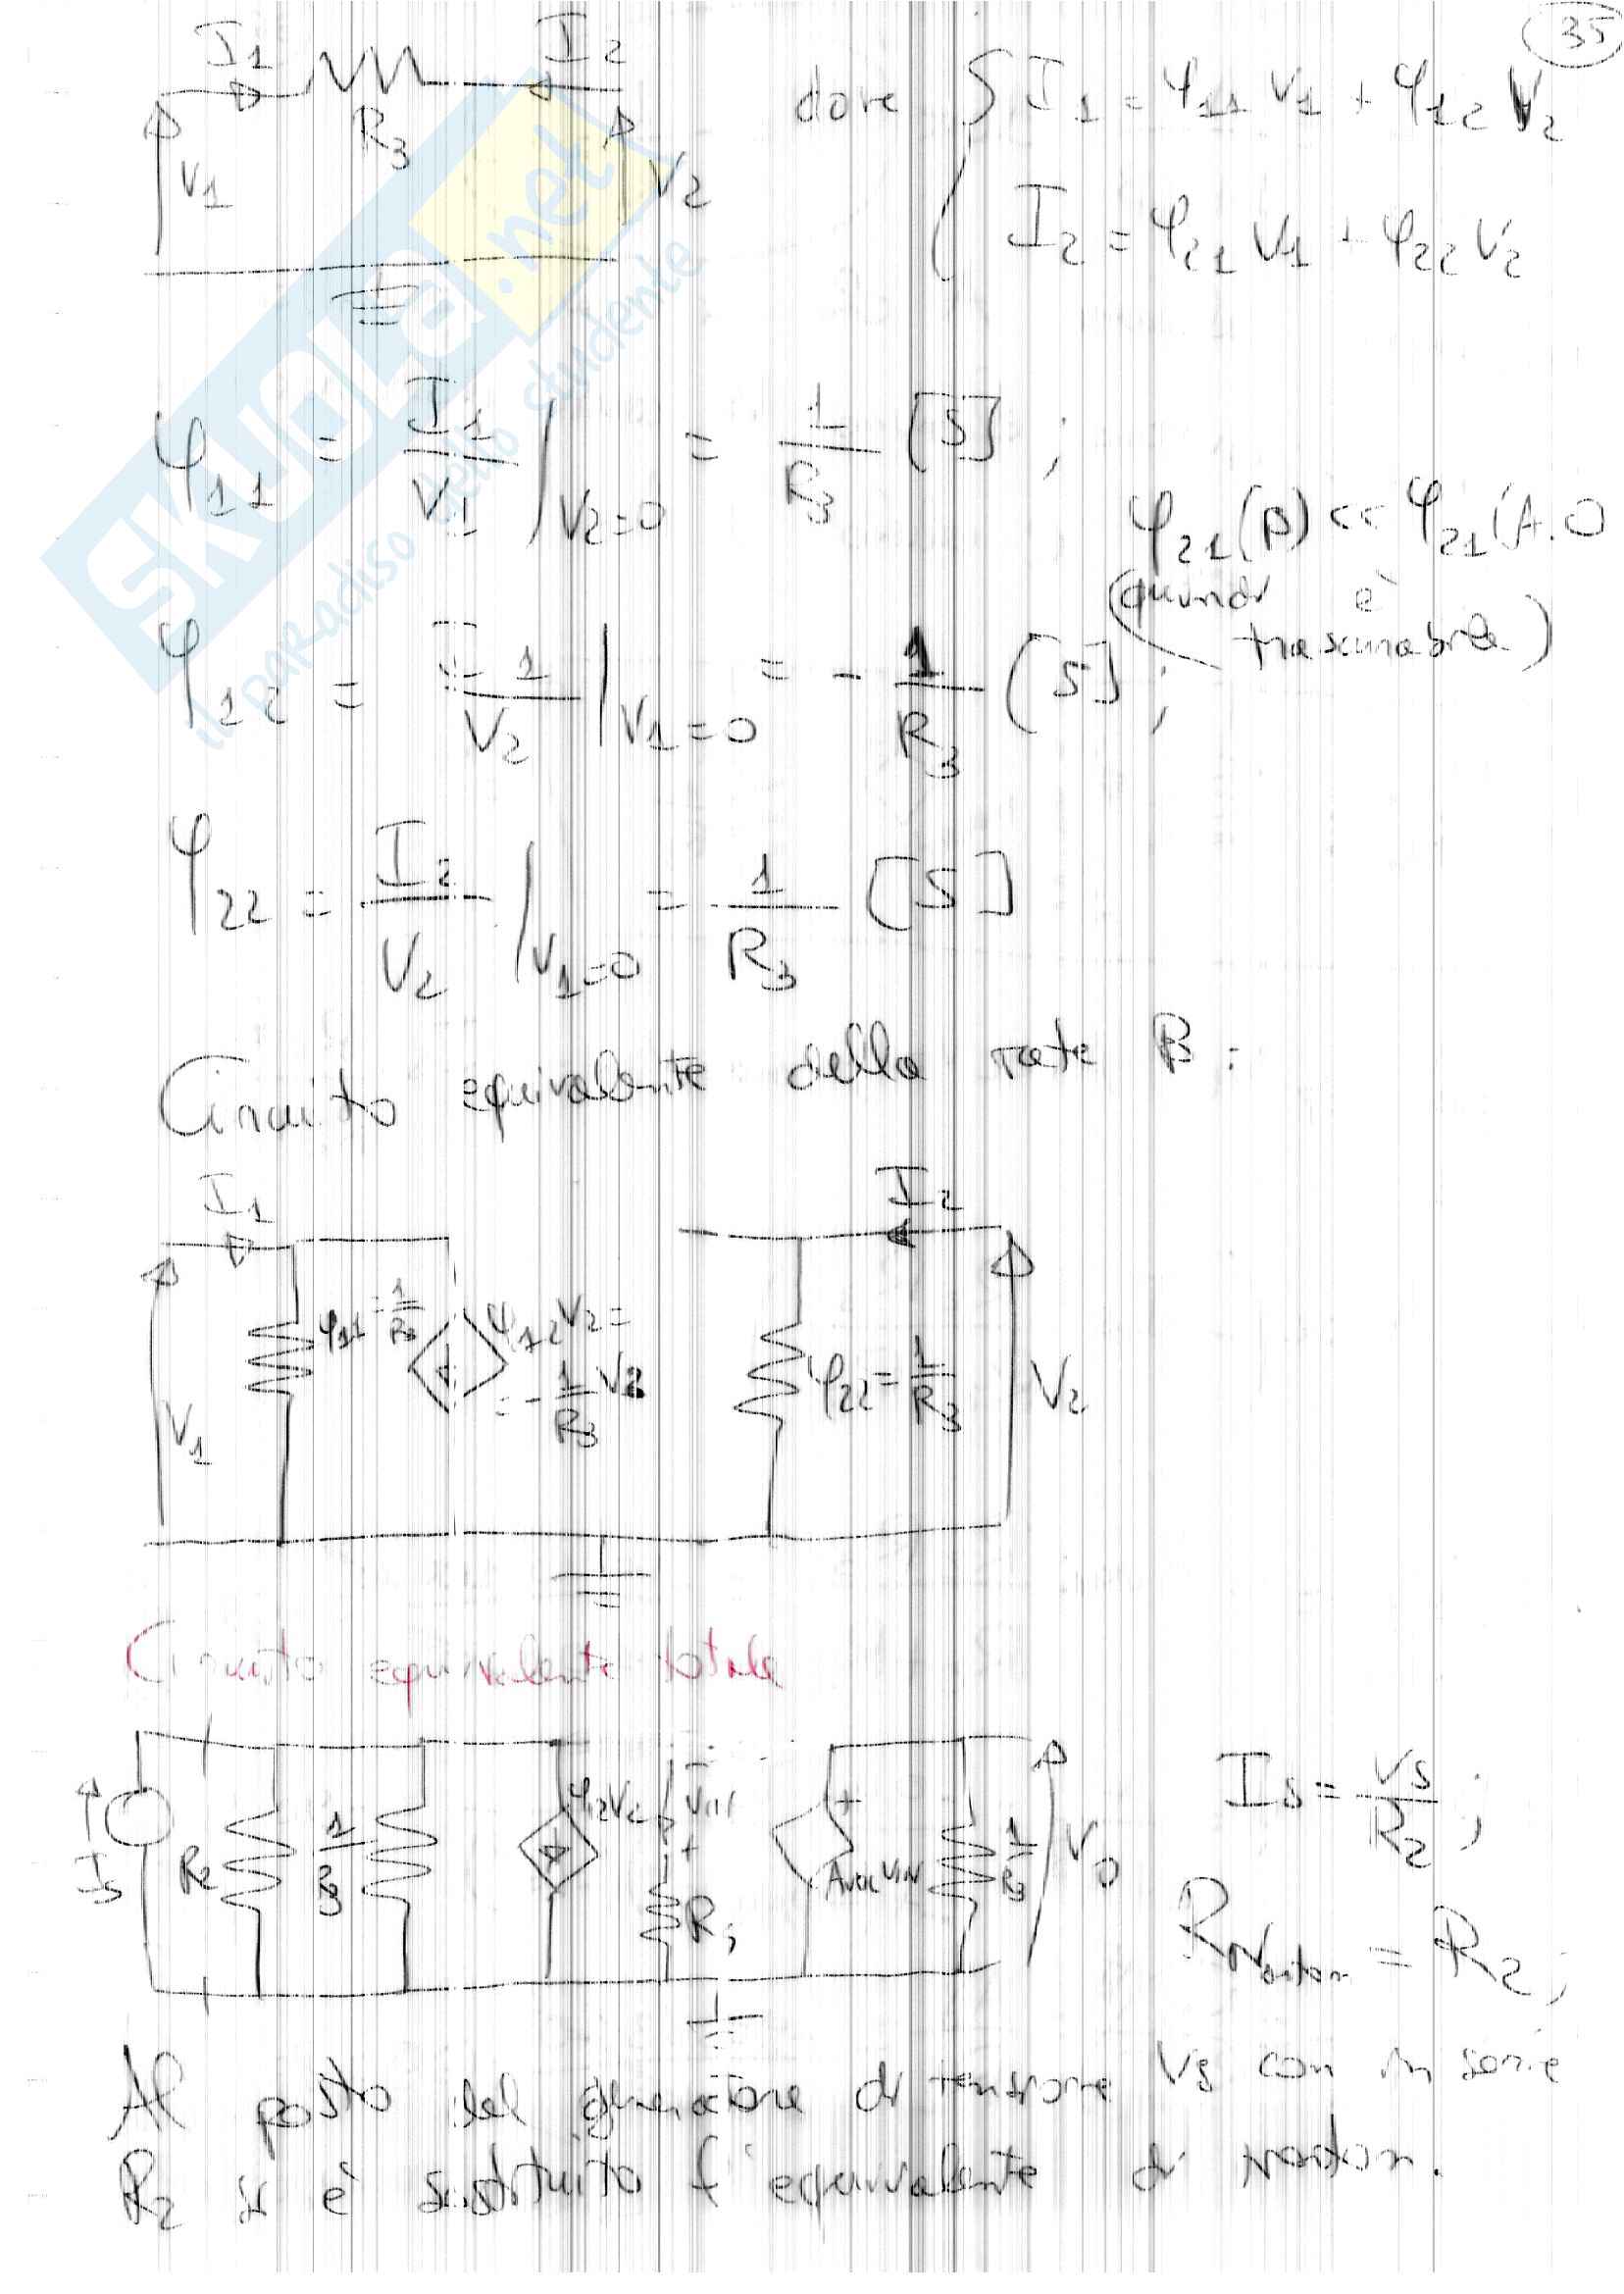 35
I1 I2
R3
V1 V2
dove { I1 = φ11 V1 + φ12 V2
I2 = φ21 V1 + φ22 V2
SKUOLA.net
il paradiso dello studente
φ11 = I1/V1 |V2=0 = 1/R3 [S] ;
φ21(β) << φ21(A.O
(quindi è
trascurabile)
φ12 = I1/V2 |V1=0 = - 1/R3 [S] ;
φ22 = I2/V2 |V1=0 = 1/R3 [S]
Circuito equivalente della rete β :
I1 I2
φ11 = 1/R3 φ12 V2 =
= - 1/R3 V2
φ22 = 1/R3 V2
V1
Circuito equivalente totale
IS R2 1/R3 φ12V2 VIN
- + Ri
+ AVOL VIN 1/R3 V0
IS = VS/R2 ;
RNorton = R2 ;
Al posto del generatore di tensione VS con in serie
R2 si è sostituito l' equivalente di Norton.